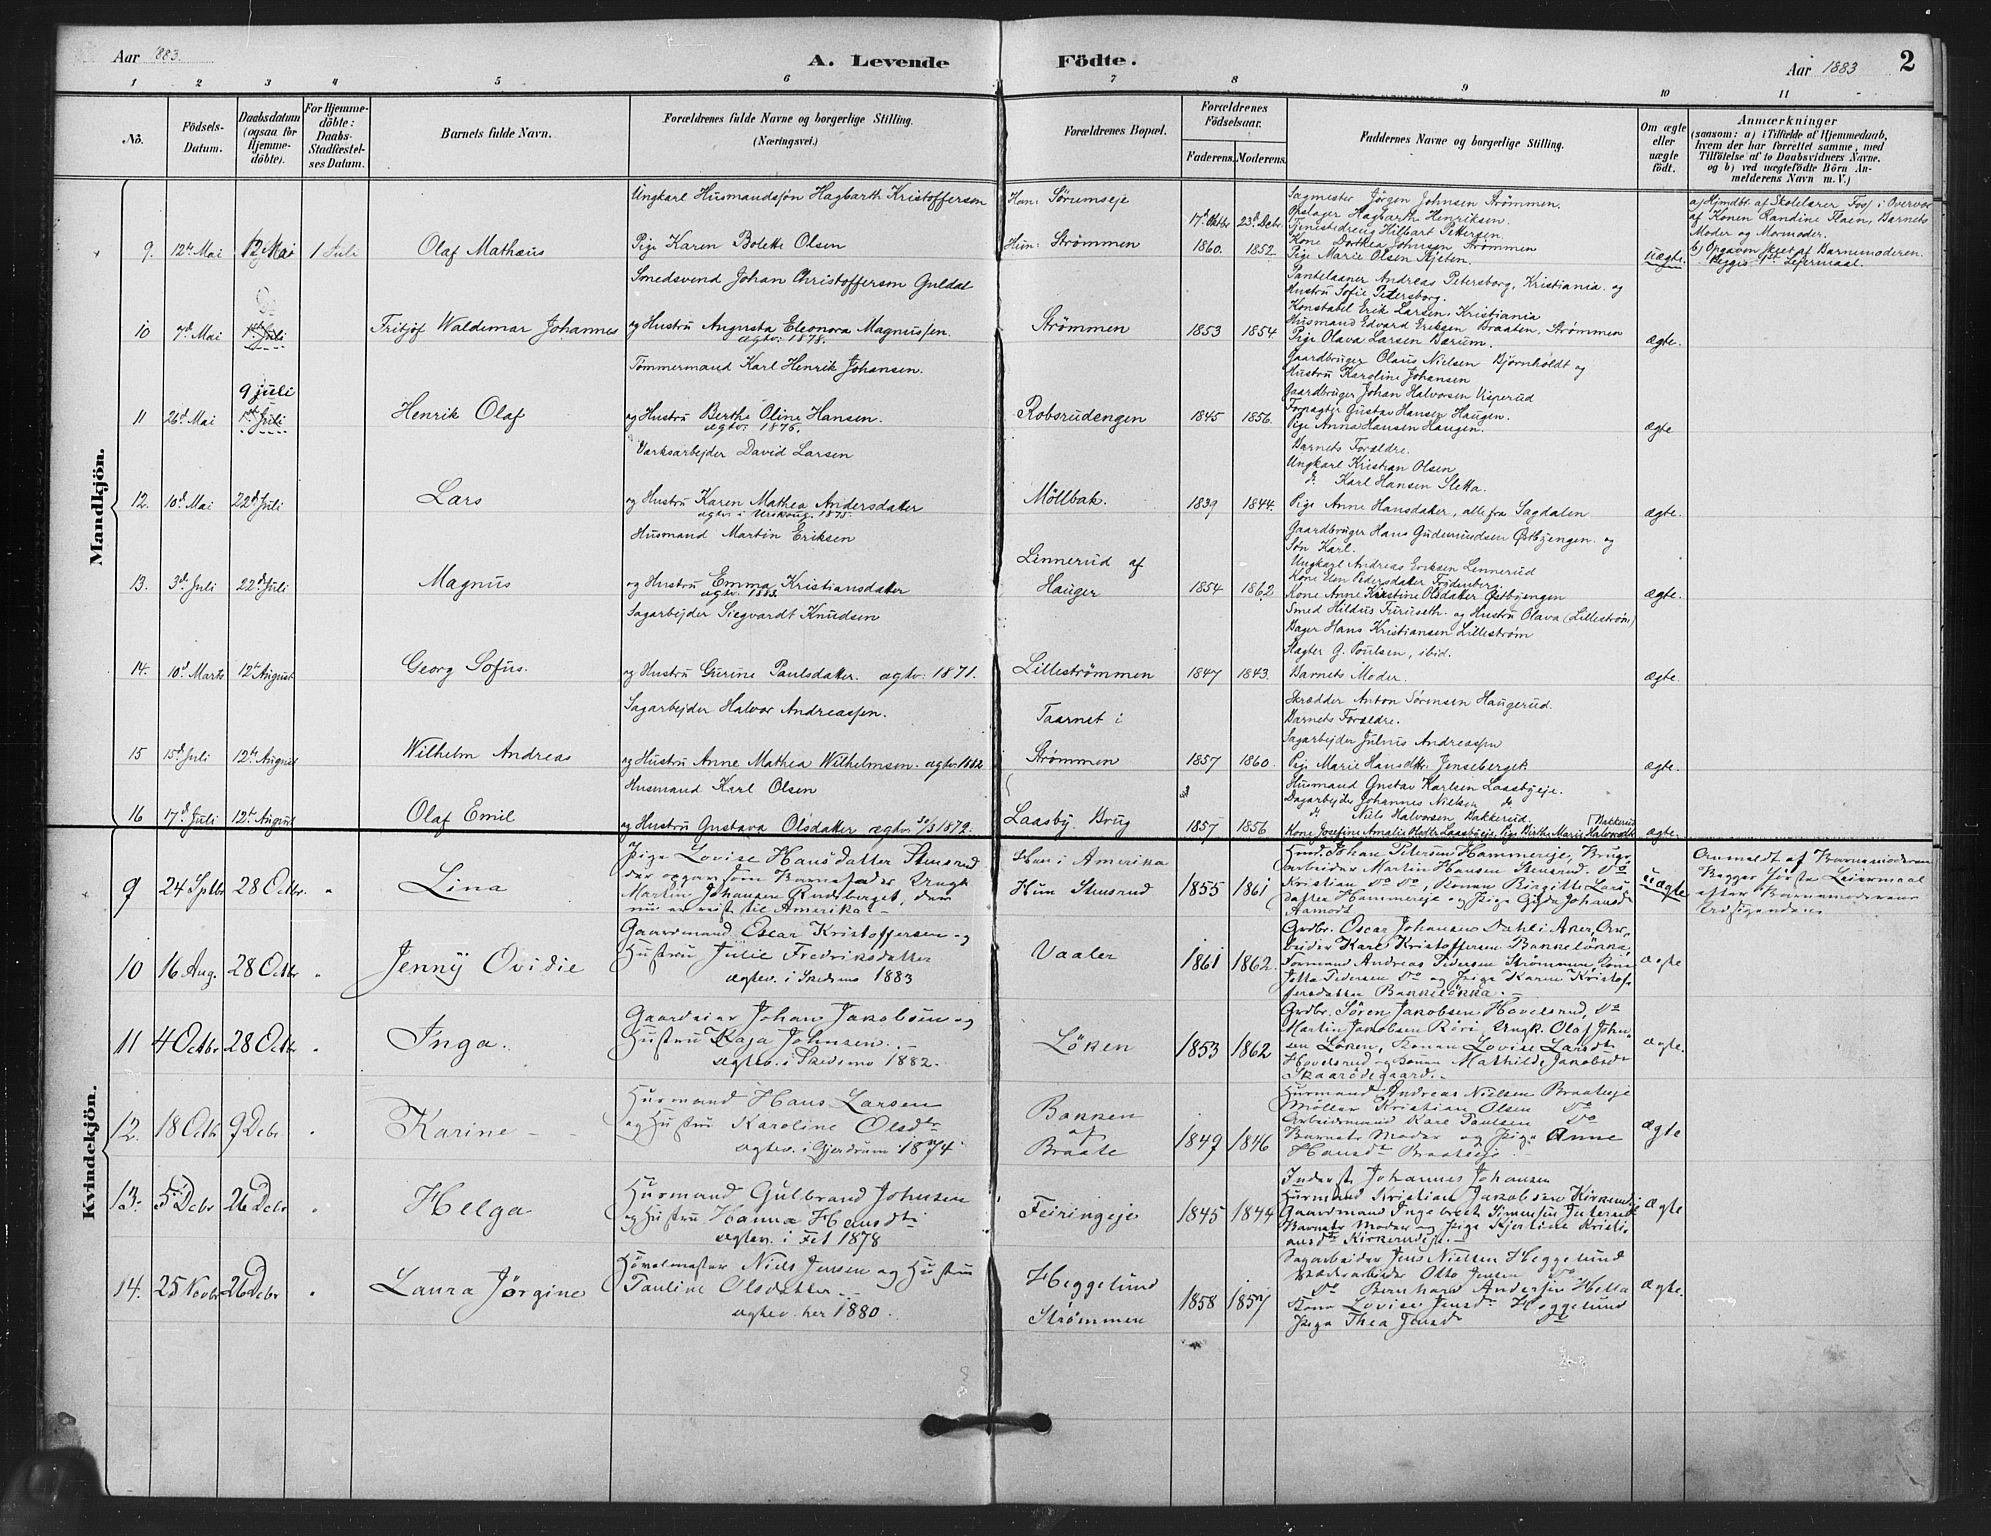 Aar 1883.
A. Levende Födte.
Aar 1883
2
1 2 3 4 5 6 7 8 9 10 11
No.
Födsels-Datum.
Daabsdatum (ogsaa for Hjemme-döbte).
For Hjemme-döbte: Daabs-Stadfæstel-ses Datum.
Barnets fulde Navn.
Forældrenes fulde Navne og borgerlige Stilling. (Næringsvei.)
Forældrenes Bopæl.
Forældrenes Födselsaar.
Faderens. Moderens.
Faddernes Navne og borgerlige Stilling.
Om ægte eller uægte födt.
Anmærkninger
(saasom: a) i Tilfælde af Hjemmedaab, hvem der har forrettet samme, med Tilföielse af to Daabsvidners Navne. og b) ved uægtefödte Börn An-melderens Navn m. V.)
Mandkjön.
9. 12te Mai 12 Mai 1 Juli Olaf Mathæus
Ungkarl Husmandssøn Hagbarth Kristofferson
Pige Karen Bolette Olsen
Han: Sørumseje
Hun: Strømmen
17d Oktbr 1860. 23d Debr. 1852
Sagmester Jørgen Johnsen Strømmen.
Opslager Hagbarth Henriksen.
Tjenestedreng Hilbart Pettersen.
Kone Dorthea Johnsen Strømmen
Pige Marie Olsen
uægte.
a) Hjmdbt. af Skolelærer Foss i Overvær
af Konen Randine Flaen, Barnets
Moder og Mormoder.
b) Opgaven skeet af Barnemoderen.
Begges 1st Lejermaal.
10 7d Mai 1ste Juli Fritjof Waldemar Johannes
Smedsvend Johan Christofferson Guldal
og Hustru Augusta Eleonora Magnussen.
ægtv: 1878.
Strømmen 1853 1854.
Pantelaaner Andreas Petersborg, Kristiania. og
Hustru Sofie Petersborg.
Konstabel Erik Larsen, Kristiania
Husmand Edvard Eriksen Braaten, Strømmen
Pige Olava Larsen Bærum.
ægte.
9 juli
11 26d Mai 1ste Juli Henrik Olaf
Tømmermand Karl Henrik Johansen.
og Hustru Berthe Oline Hansen.
ægtv: 1876.
Robsrudengen 1845 1856.
Gaardbruger Olaus Nielsen Bjørnholdt og
Hustru Karoline Johansen
Gaardbruger Johan Halvorsen Visperud
Forpagter Gustav Hansen Haugen.
Pige Anna Hansen Haugen.
ægte
12. 10d Mai 22d Juli Lars
Værksarbejder David Larsen
og Hustru Karen Mathea Andersdatter
ægtv. i Urskoug. 1875.
Möllbak. 1839 1844.
Barnets Forældre.
Ungkarl Kristian Olsen
do Karl Hansen Sletta.
Pige Anne Hansdatter, alle fra Sagdalen
ægte.
13. 3d Juli 22d Juli Magnus
Husmand Martin Eriksen
og Hustru Emma Kristiansdatter
ægtv. 1883.
Linnerud af
Hauger 1854 1862
Gaardbruger Hans Gudmundsen Østbyengen. og
Søn Karl.
Ungkarl Andreas Eriksen Linnerud
Kone Elen Pedersdatter Frydenberg.
Kone Anne Kirstine Olsdatter Østbyengen
ægte.
14. 10d Marts 12te August Georg Sofus.
Sagarbejder Siegvardt Knudsen
og Hustru Gurine Paulsdatter. ægtv: 1871.
Lillestrømmen 1847 1843.
Smed Hildus Furuseth. og Hustru Olava (Lillestrøm)
Bager Hans Kristiansen Lillestrøm
Slagter G. Poulsen, ibid.
Barnets Moder.
ægte.
15 15d Juli 12te August Wilhelm Andreas
Sagarbejder Halvor Andreassen.
og Hustru Anne Mathea Wilhelmsen. ægtv. 1882
Taarnet i
Strømmen 1857 1860.
Skrædder Anton Sørensen Haugerud.
Barnets Forældre.
Sagarbejder Julius Andreassen
Pige Marie Hansdtr. Jenseberget.
ægte.
16 17d Juli 12te August Olaf Emil
Husmand Karl Olsen
og Hustru Gustava Olsdatter ægtv. 1879.
Laasby Brug 1857 1856
Husmand Gustav Karlsen Laasbyeje.
Dagarbejder Johannes Nielsen do
do Niels Halvorsen Bakkerud.
Kone Josefine Amalie Laasbyeje Pige Birthe Marie Halvorsdt. Bakkerud
ægte.
Kvindekjön.
9 24 Sptbr 28 Octbr. " Lina
Pige Lovise Hansdatter Stensrud
der opgav som Barnefader Ungk
Martin Johansen Rudsberget, dem
nu er reist til Amerika.
Han i Amerika
Hun Stensrud 1855 1861
Husm. Johan Petersen Hammereje, Brugs-
arbeider Martin Hansen Stensrud. Do
Kristian Do Do, Konen Birgitte Lars-
datter Hammereje og Pige Gyda Johansd
Aamodt
uægte
Anmeldt af Barnemoderen
Begges første Leiermaal
efter Barnemoderens
Udsigende.
10 16 Aug. 28 Octbr " Jenny Ovidie
Gaardmand Oscar Kristoffersen og
Hustru Julie Fredriksdatter
ægtev. i Skedsmo 1883
Vaaler 1861 1862.
Grdbr. Oscar Johansen Dahl i Aker, Ar-
beider Karl Kristoffersen Bakkeløkka,
Formand Andreas Pedersen Strømmen, Kone
Jette Pedersen Do og Pige Karen Kristof-
fersdatter Bakkeløkka.
ægte
11 4 Octbr 28 Octbr " Inga.
Gaardeier Johan Jakobsen og
Hustru Kaja Johnsen.
ægtev. i Skedsmo 1882.
Löken 1853 1862
Grdbr. Sören Jakobsen Hovelsrud, Do
Martin Jakobsen Röri Ungk. Olaf John-
sen Löken, Konen Lovise Larsdt
Hovelsrud og Konen Mathilde Jakobsdt
Skaarödegaard.
ægte.
12. 18 Octbr 9 Debr " Karine
Husmand Hans Larsen
og Hustru Karoline Olsdtr
ægtev. i Gjerdrum 1874.
Bakken
af
Braate 1849 1846
Husmand Andreas Nielsen Braateeje
Möller Kristian Olsen Do
Arbeidsmand Karl Paulsen Do
Barnets Moder og Pige Anne
Hansdtr Braateeje
ægte
13. 5 Debr 26 Debr " Helga
Husmand Gulbrand Johnsen
og Hustru Hanna Hansdt
ægtev. i Fet 1878
Feiringeje 1845 1844
Inderst Johannes Johansen
Husmand Kristian Jakobsen Kirkerudeje
Gaardmand Ingebrecht Simensen
Barnets Moder og Pige Kjerstine Kristi-
ansdtr Kirkerudeje.
ægte
14. 25 Novbr 26 Debr " Laura Jørgine
Hövelmester Niels Jensen og Hustru
Pauline Olsdatter
ægtev. her 1880.
Heggelund
Strømmen 1858 1857
Sagarbeider Jens Nielsen Heggelund
Otto Jensen Do
Do Bernhard Andersen Hella
Kone Lovise Jensdtr Heggelund
Pige Thea Jensdtr Do
ægte.